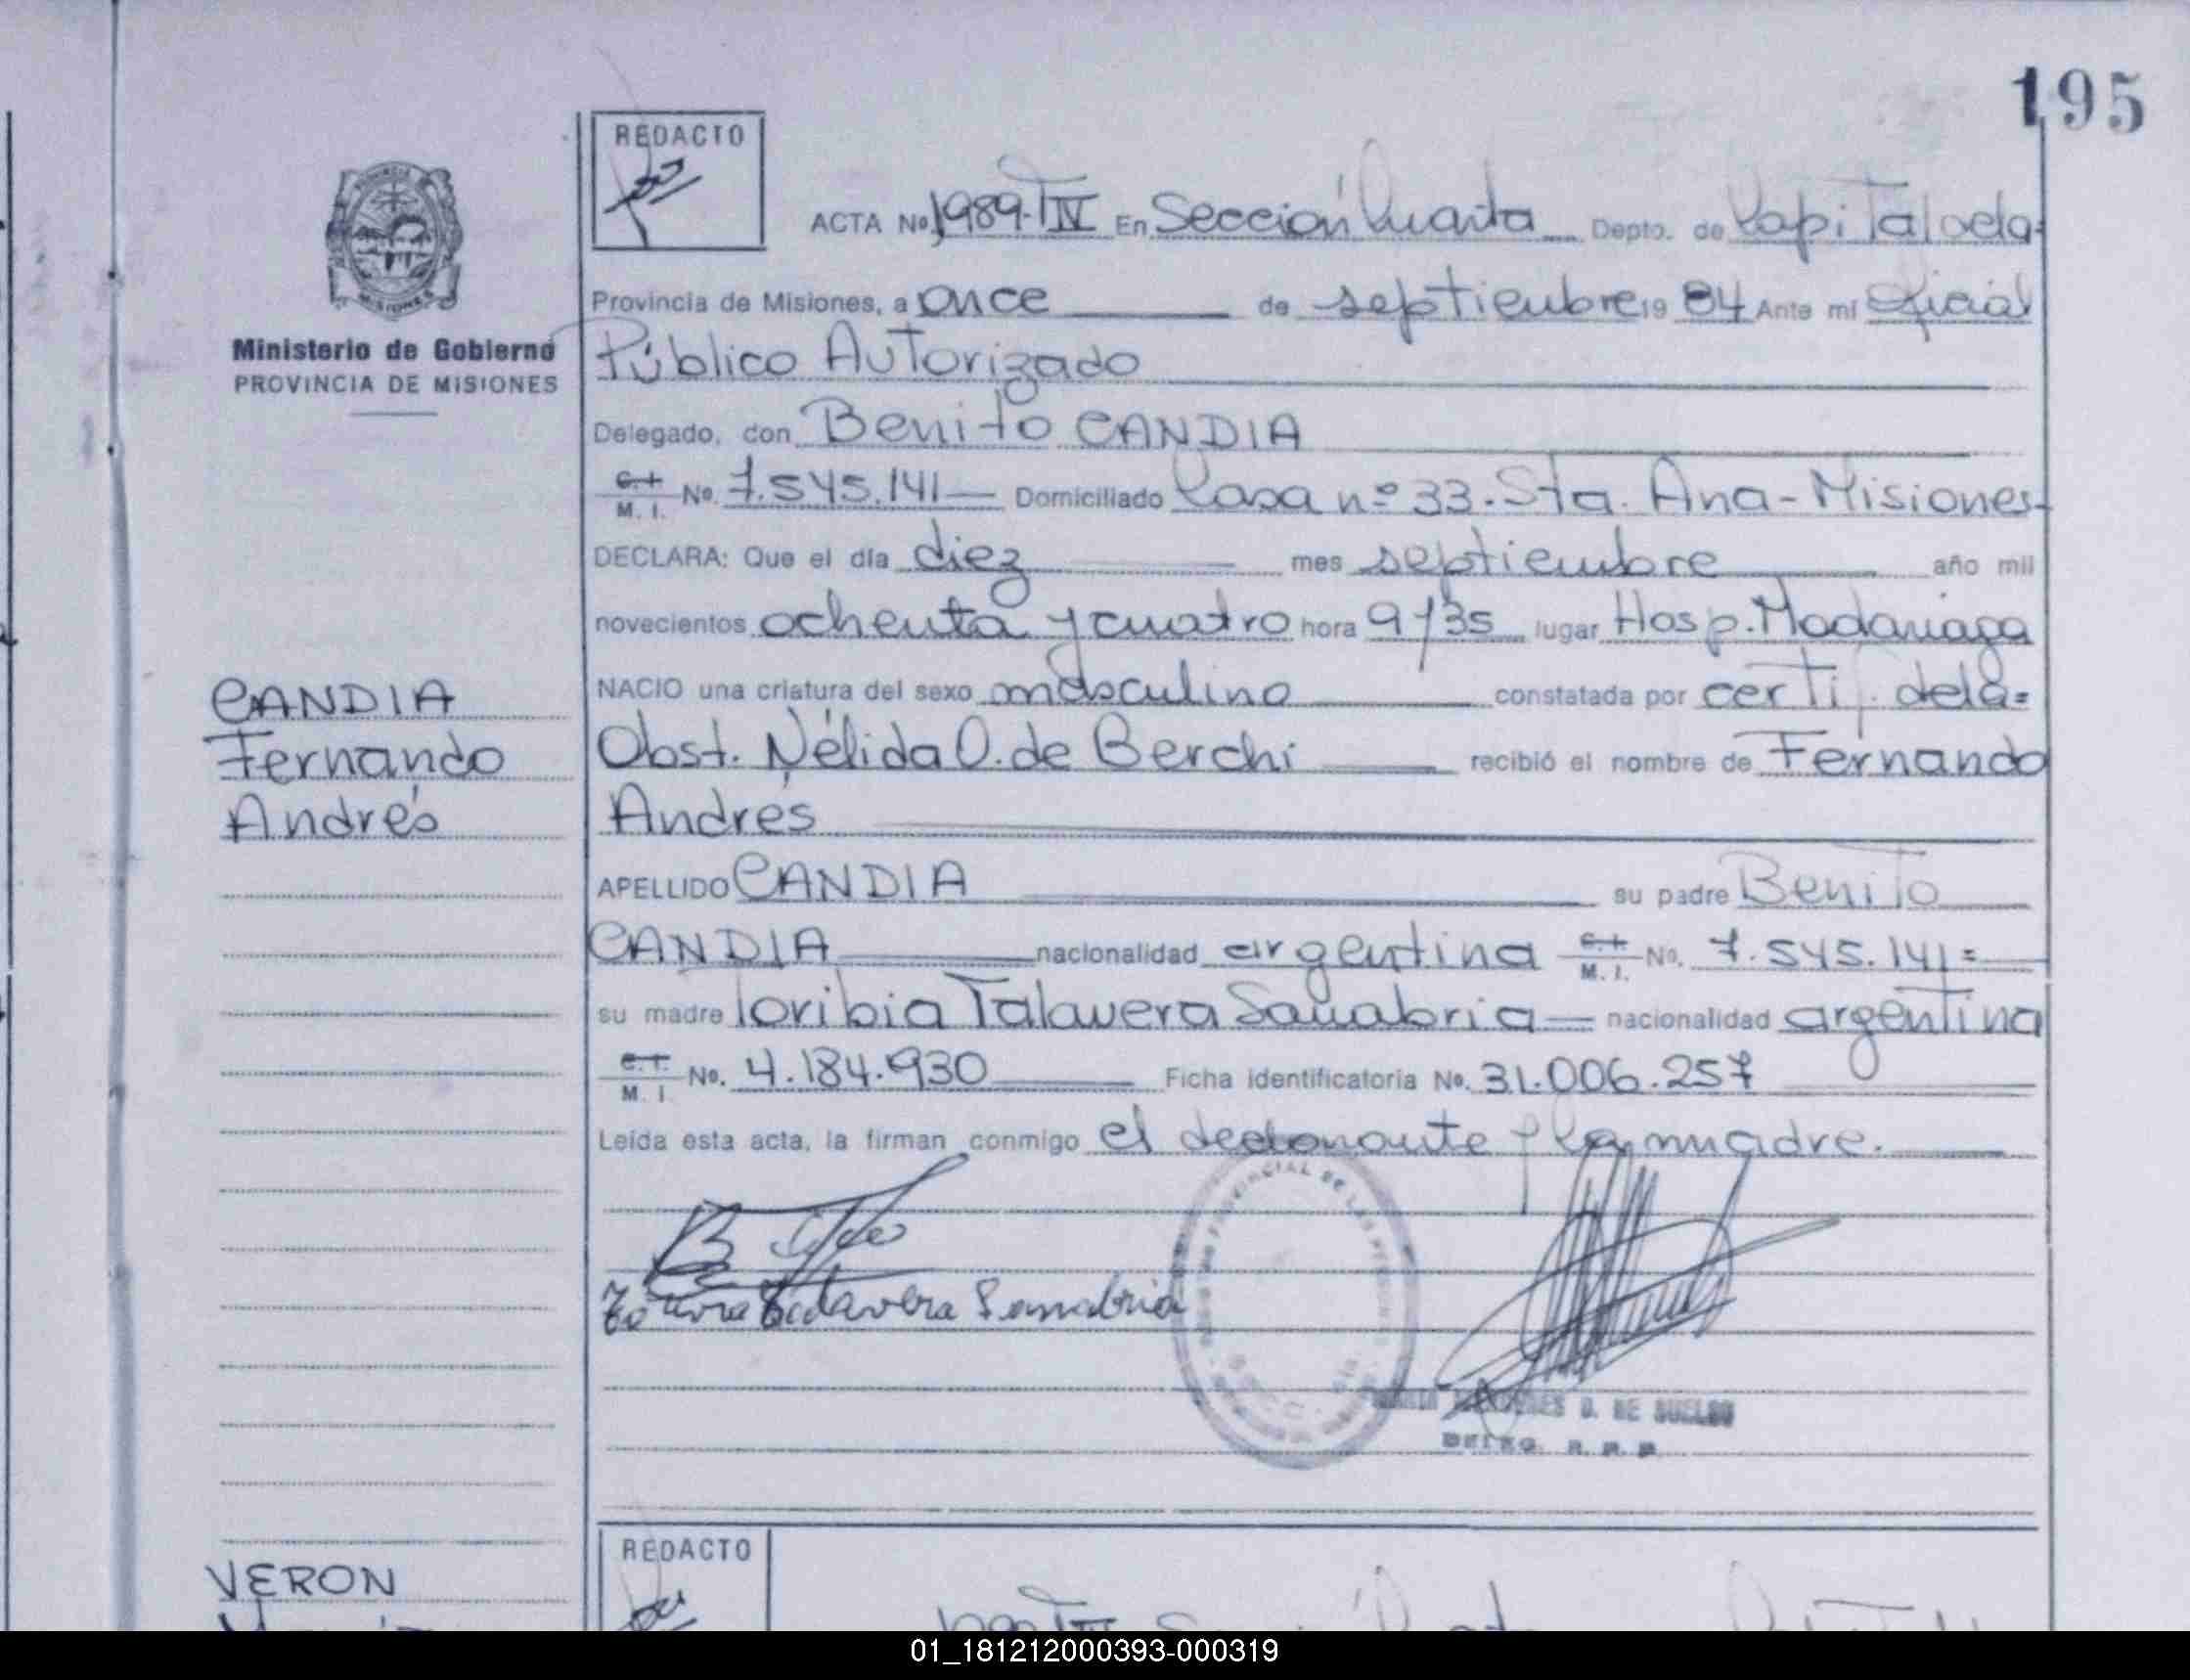 195
REDACTO
ACTA No 1989-IV En Sección Cuarta Depto. de Capital dela-
Provincia de Misiones, a once de septiembre 19 84 Ante mi Oficial
Público Autorizado
Delegado, don Benito CANDIA
C.I. M. I. No. 7.545.141 Domiciliado Casa nº 33. Sta. Ana - Misiones-
DECLARA: Que el día diez mes septiembre año mil
novecientos ochenta y cuatro hora 9/35 lugar Hosp. Madariaga
NACIO una criatura del sexo masculino constatada por certif. dela=
Obst. Nélida O. de Berchi recibió el nombre de Fernando
Andrés
APELLIDO CANDIA su padre Benito
CANDIA nacionalidad argentina C.I. M. I. No. 7.545.141=
su madre Toribia Talavera Sanabria nacionalidad argentina
C.I. M. I. No. 4.184.930 Ficha identificatoria No. 31.006.257
Leída esta acta, la firman conmigo el declarante y la madre.
Talavera Sanabria
D. DE
Ministerio de Gobierno
PROVINCIA DE MISIONES
MISIONES
CANDIA
Fernando
Andrés
VERON
REDACTO
01_181212000393-000319